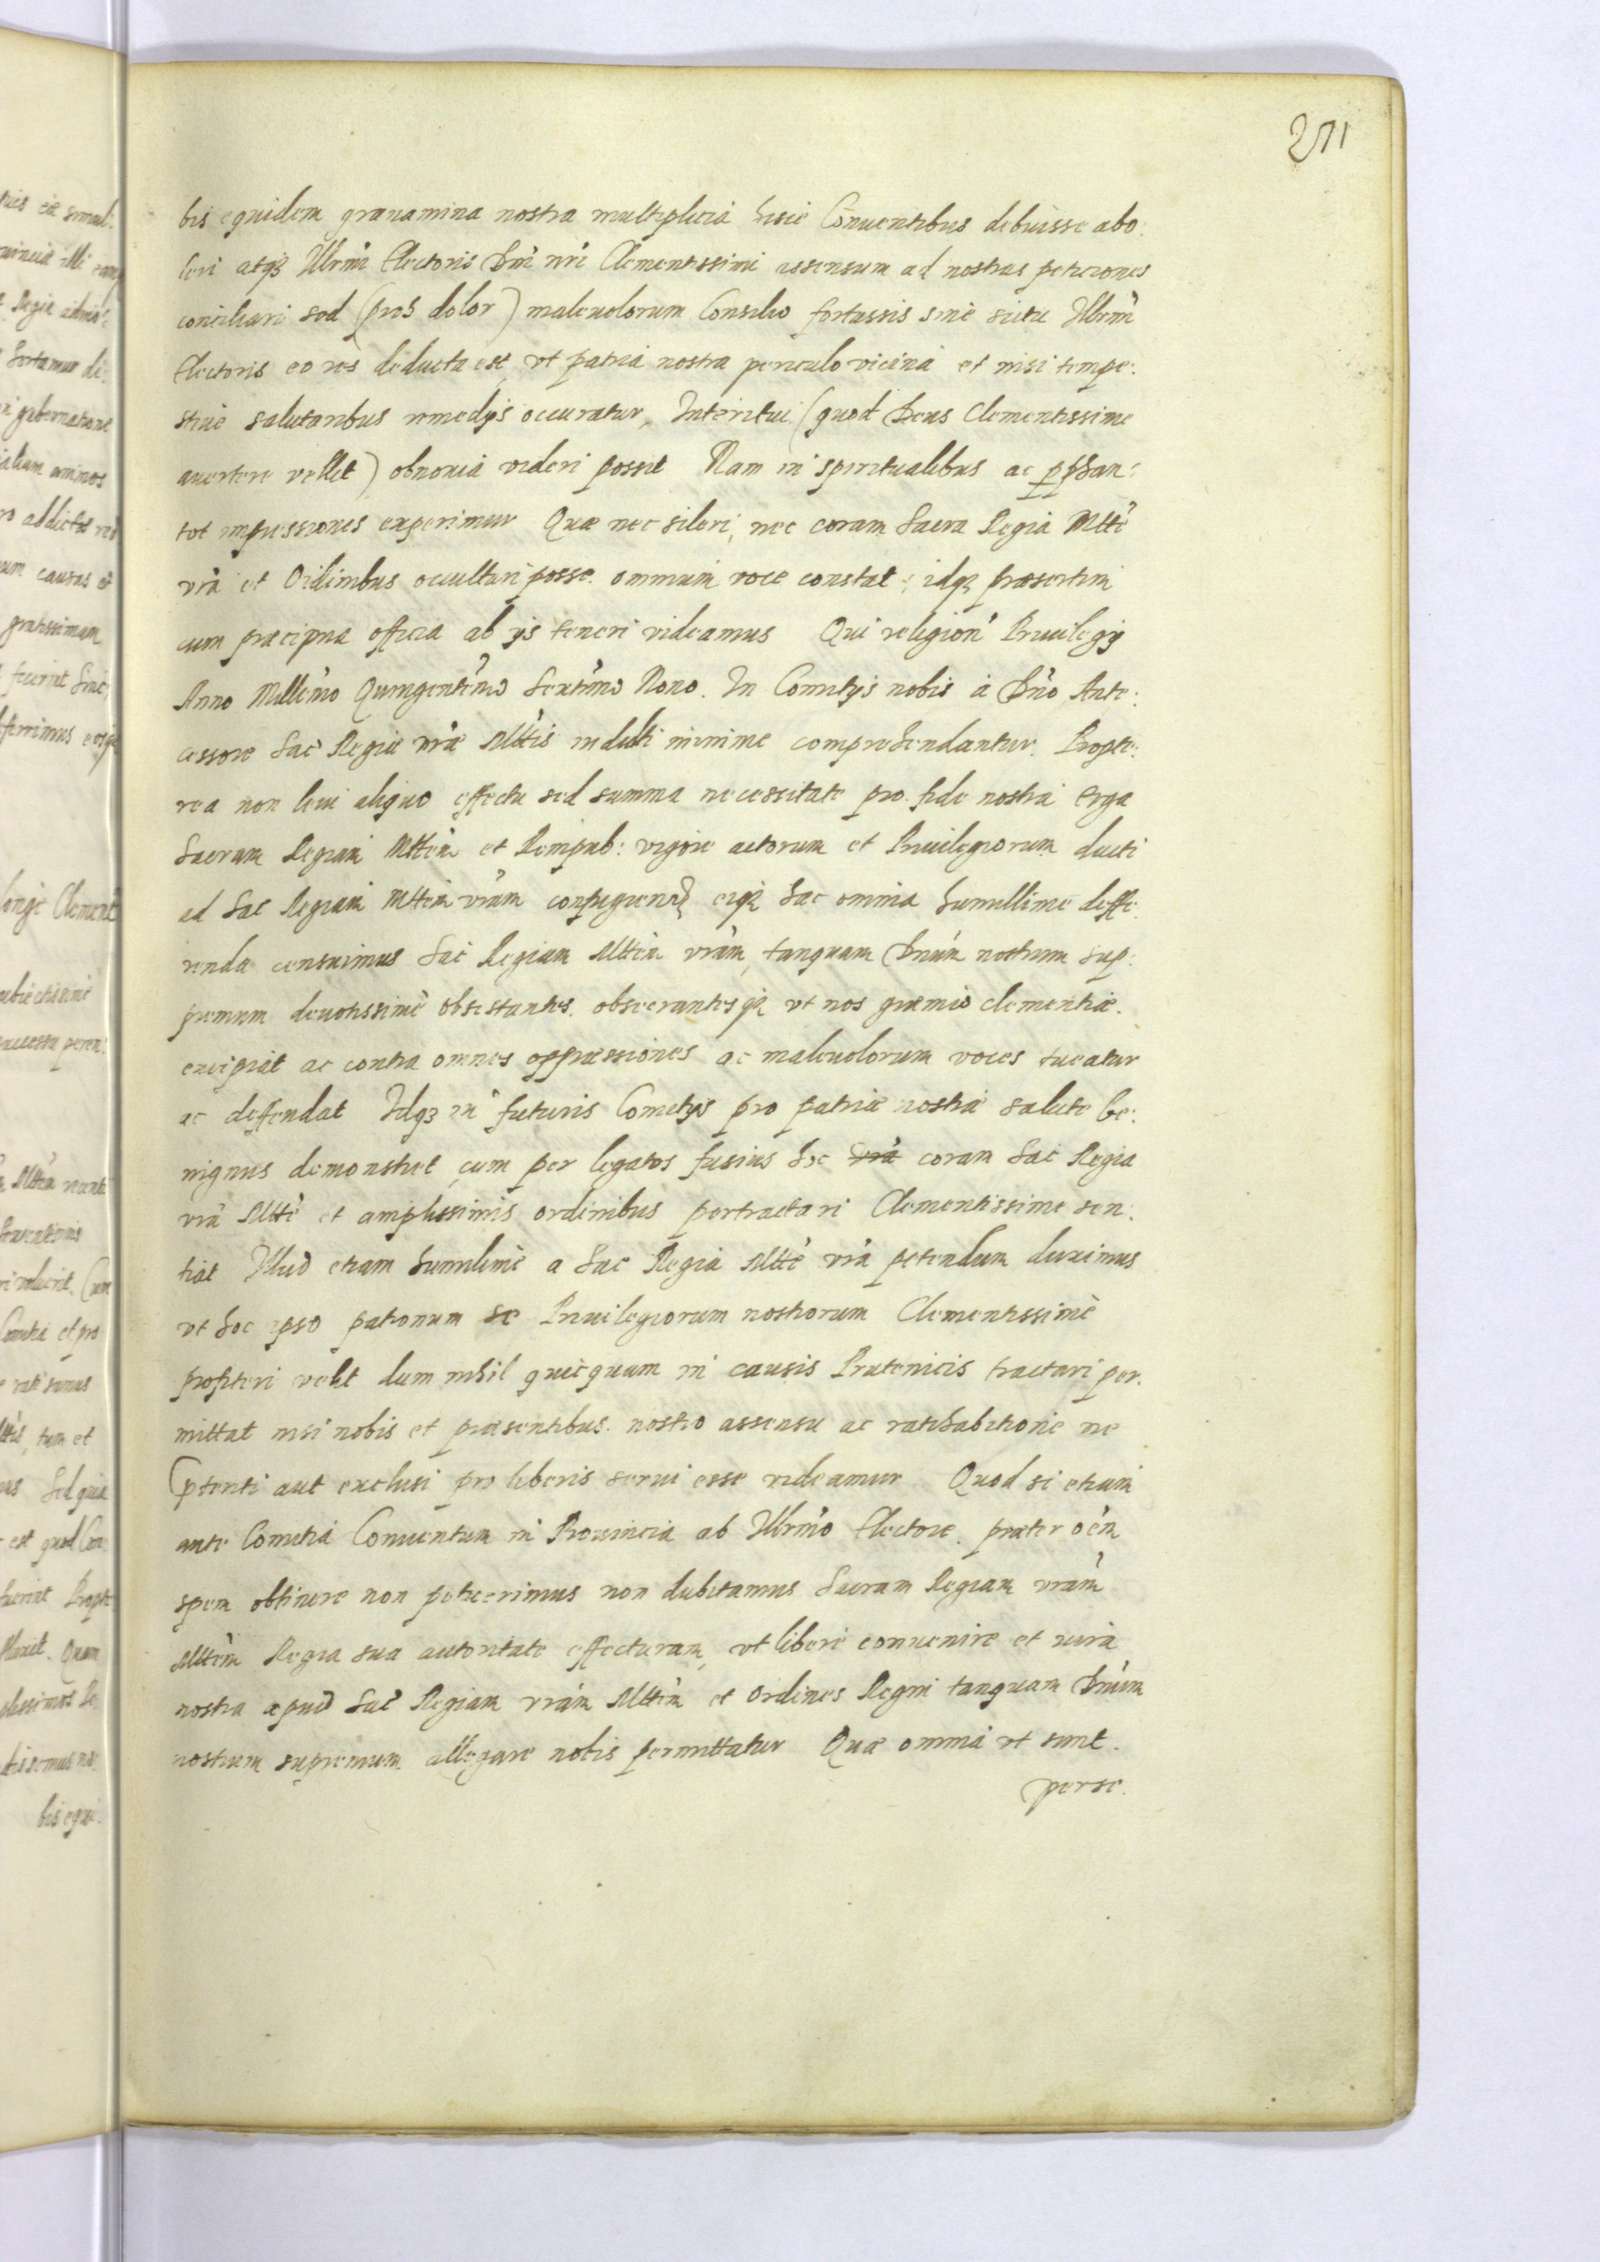 271
bis equidem grauamina nostra multiplicia hisce Conuentibus debuisse abo:
leri atq3 Illrmi Electoris Dni nri Clementissimi assensum ad nostras petitiones
conciliari sed (proh dolor) maleuolorum Consilio fortassis sine scitu Illrmi
Electoris eo res deducta est, vt patria nostra periculo vicina et nisi tempe:
stiue salutaribus remedijs occuratur, Interitui (quod Deus Clementissime
auertere vellet) obnoxia videri possit Nam in spiritualibus ac
tot impressiones experimur Quæ nec sileri, nec coram Sacra Regia Mtte
vra et Ordinibus occultari posse. omnium voce constat; idq3 præsertim
cum præcipua officia ab ijs teneri videamus Qui religion Priuilegij
Anno Millemo Quingentemo Sextimo Nono. In Comitijs nobis a Dno Ante:
cessore Sac Regiæ vræ Mttis indulti minime comprehendantur. Propte:
rea non leui aliquo effectu sed summa necessitate pro fide nostra Erga
Sacram Regiam Mttem et Reipub: vigore actorum et Priuilegiorum ducti
ad Sac Regiam Mttem vram eiq3 hac omnia humillime deffe:
renda censuimus Sac Regiam Mttem vram, tanquam Dnum nostrum sup:
premum deuotissime obtestantes. obsecrantesq3 vt nos græmio clementiæ.
excipiat ac contra omnes oppressiones ac maleuolorum voces tueatur
ac deffendat Idq3 in futuris Comitijs pro patriæ nostræ salute be:
nignus demonstret, cum per legatos fusius hæc vra coram Sac Regia
vra Mtte et amplissimis ordinibus pertractari Clementissime sen:
tiat Illud etiam humilime a Sac Regia Mtte vra petendum duximus
vt hoc ipso patronum se Priuilegiorum nostrorum Clementissime
profiteri velit dum nihil quicquam in causis Prutenicis tractari per.
mittat nisi nobis et præsentibus. nostro assensu ac ratihabitione ne
aut exclusi pro liberis serui esse videamur Quod si etiam
ante Comitia Conuentum in Prouincia ab Illrmo Electore. præter oem
spem obtinere non poterimus non dubitamus Sacram Regiam vram
Mttem Regia sua autoritate effecturam, vt libere conuenire et iura
nostra apud Sac Regiam vram Mttem et ordines Regni tanquam Dnum
nostrum supremum allegare nobis permittatur Quæ omnia vt sunt.
perse.